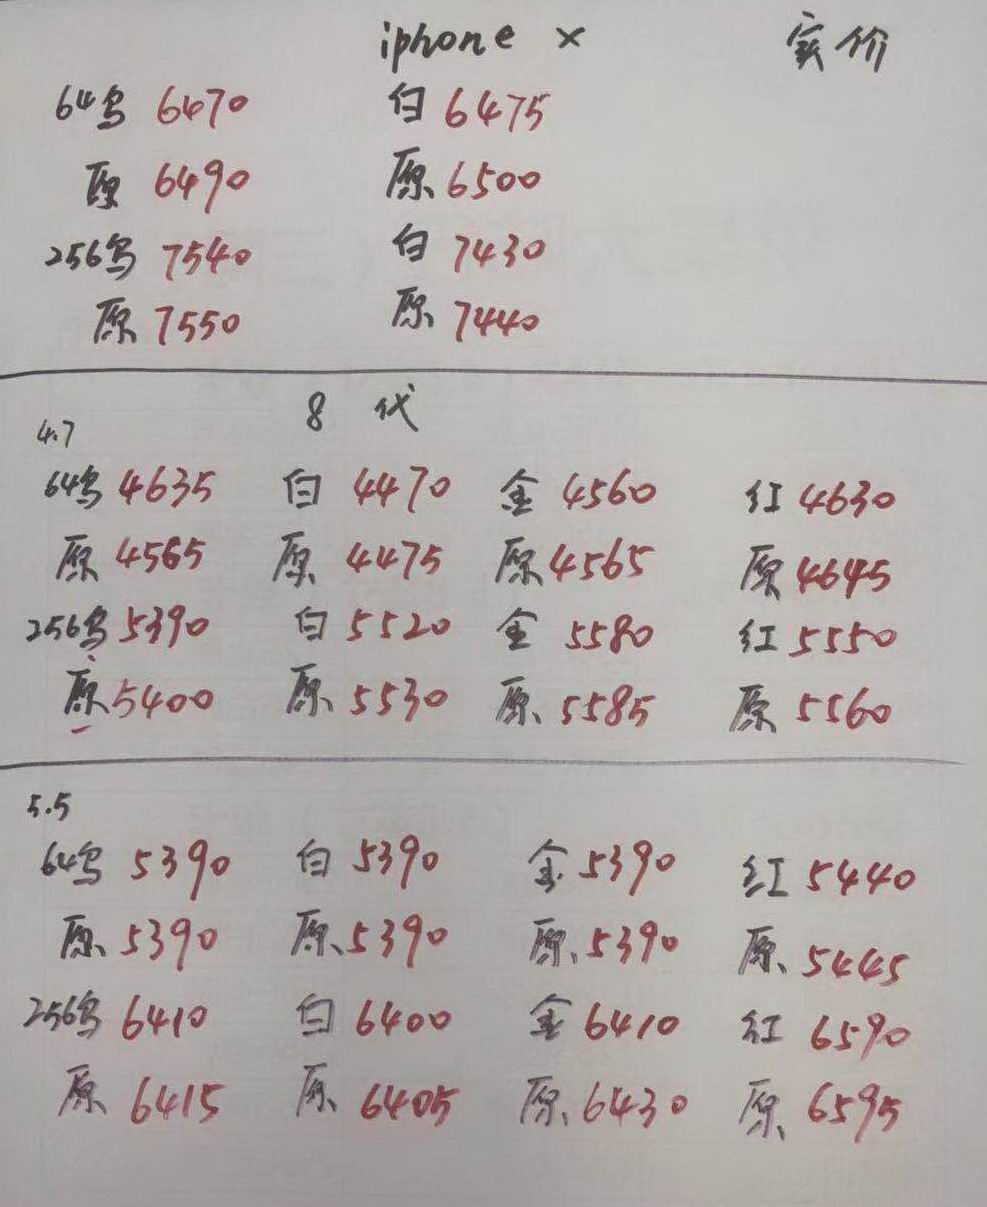 iphone × 实价
64乌 6470 白 6475
原 6490 原 6500
256乌 7540 白 7430
原 7550 原 7440
8 代
4.7
64乌 4635 白 4470 金 4560 红 4630
原 4565 原 4475 原 4565 原 4645
256乌 5390 白 5520 金 5580 红 5550
原 5400 原 5530 原 5585 原 5560
5.5
64乌 5390 白 5390 金 5390 红 5440
原 5390 原 5390 原 5390 原 5445
256乌 6410 白 6400 金 6410 红 6590
原 6415 原 6405 原 6430 原 6595